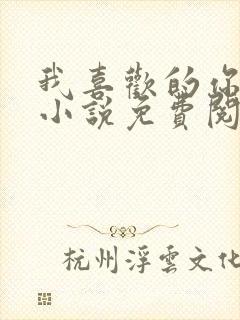 我喜歡的你
小說免費閱
杭州浮雲文化